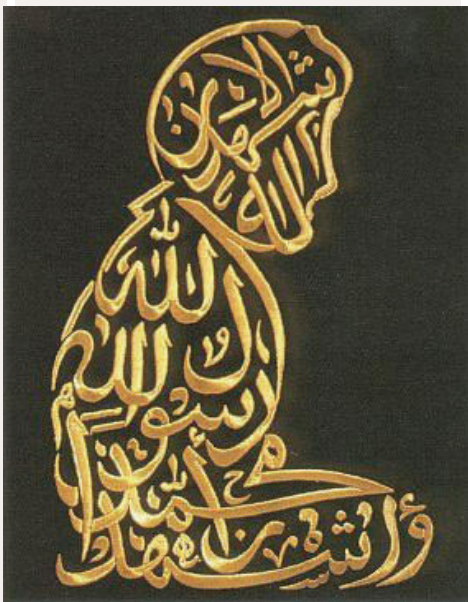 أشهد أن لا
إله إلا
الله
وأشهد أن
محمدا
رسول
الله